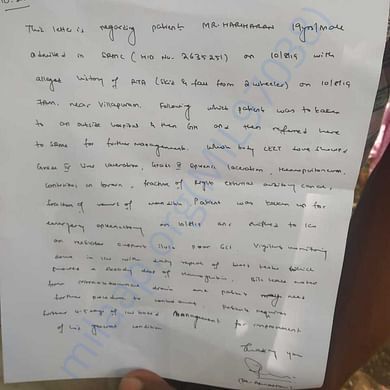 This letter is regarding patient MR. HARIHARAN 19yrs/Male
admitted in SRMC (MID No. 2635251) on 10/8/19 with
alleged history of RTA (skid & fall from 2 wheeler) on 10/8/19
7Am. near Villapuram. Following which patient was taken
to an outside hospital & then GH and then referred here
to same for further management. Whole body CECT done showed
Grade IV liver laceration, Grade II splenic laceration, Haemoperitoneum,
contusion in brain, fracture of Right external auditory canal,
fracture of ramus of mandible. Patient was taken up for
emergency on 10/8/19 and shifted to ICU
on ventilator support poor GCS. Vigilant monitoring
done in ICU with daily repeat of blood tests which
showed a steady drop of Hemoglobin. Bile leak noted
from drain and patient may need
further procedure to control same. Patient requires
further of ICU based management for improvement
of his general condition
Thanking you
milaap.org